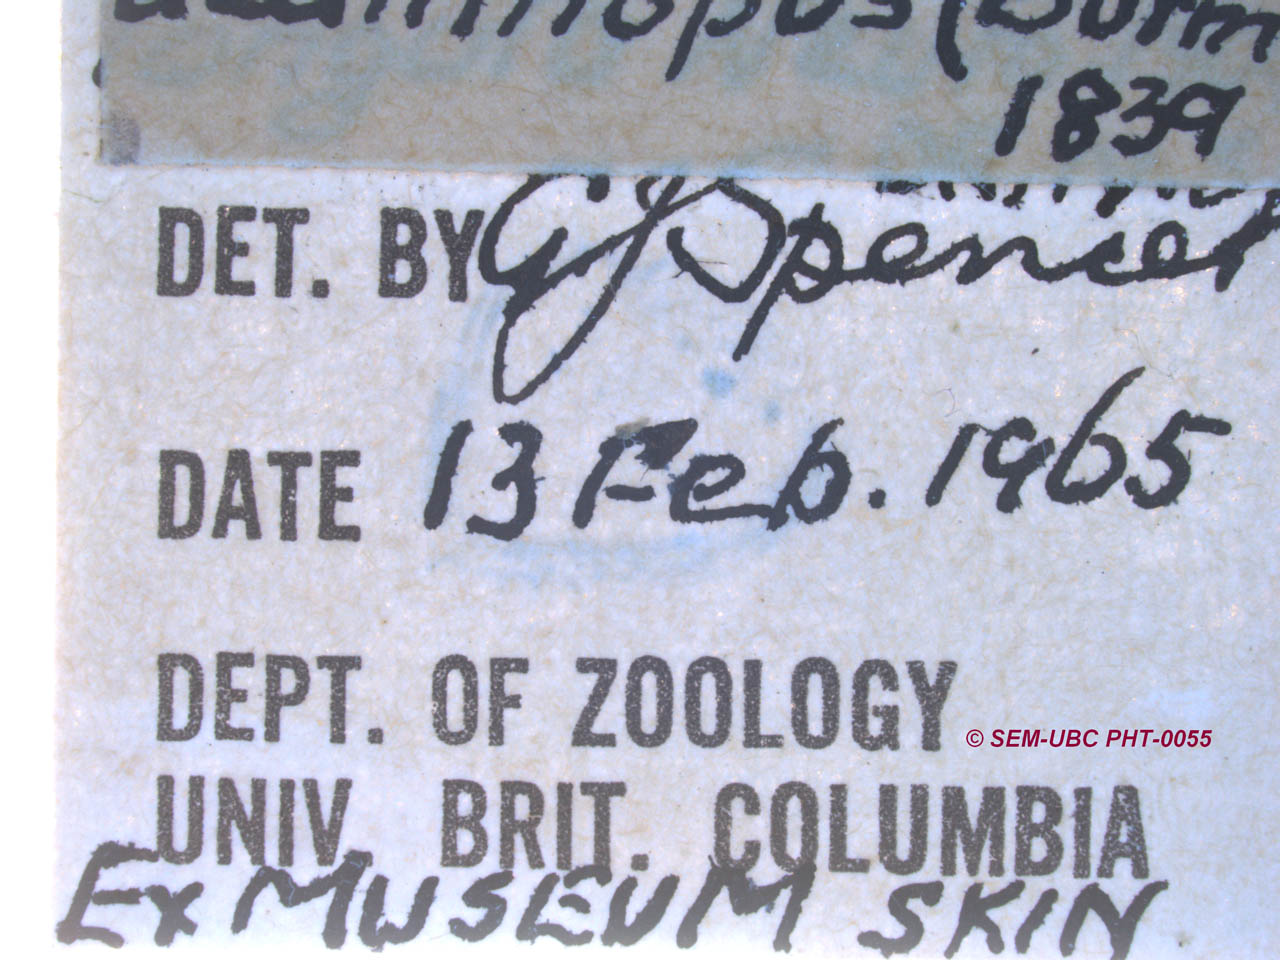 (Burm
1839
DET. BY GJSpencer
DATE 13 Feb. 1965
DEPT. OF ZOOLOGY
© SEM-UBC PHT-0055
UNIV. BRIT. COLUMBIA
Ex MUSEUM SKIN